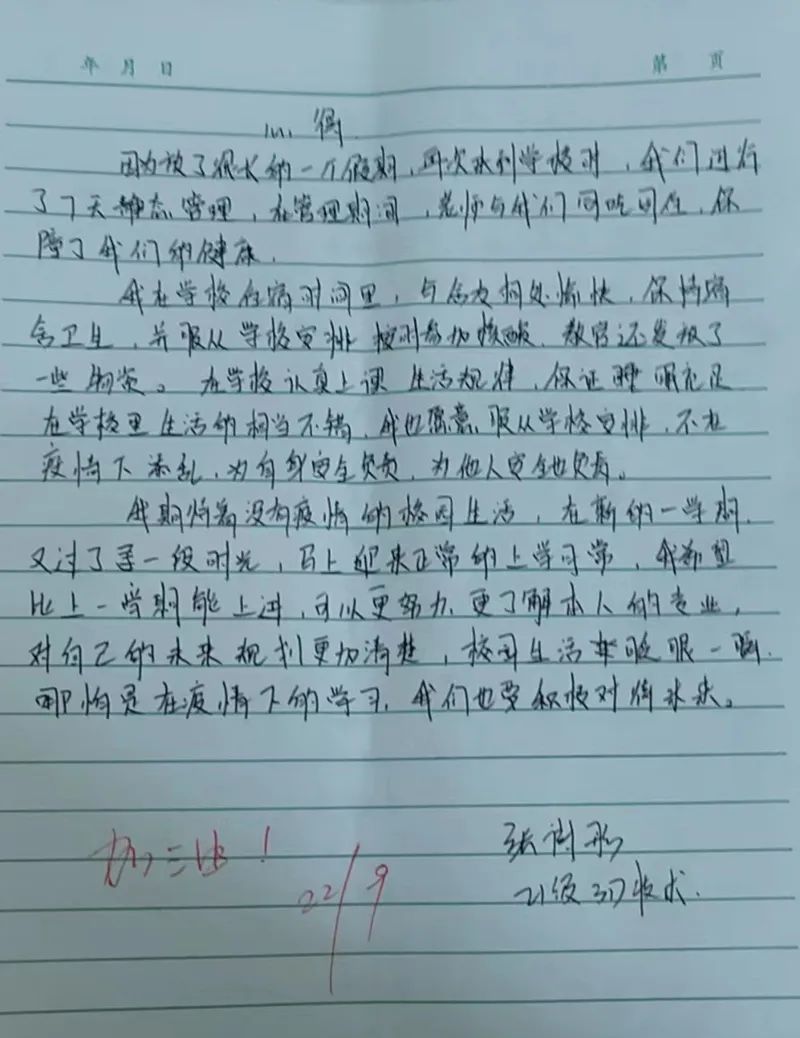 年 月 日 第 页
心得
因为放了很长的一个假期,再次来到学校时,我们进行
了7天静态管理,在管理期间,老师与我们同吃同住,保
障了我们的健康.
我在学校住宿时间里,与舍友相处愉快,保持宿
舍卫生,并服从学校安排 按时参加核酸、教官还发放了
一些物资。在学校认真上课 生活规律,保证睡眠充足
在学校里生活的相当不错,我也愿意服从学校安排,不在
疫情下添乱,为自身安全负责,为他人安全也负责。
我期待着没有疫情的校园生活,在新的一学期,
又过了第一段时光,马上迎来正常的上学习常,我希望
比上一学期能上进,可以更努力,更了解本人的专业,
对自己的未来规划更加清楚,校园生活眨眼一瞬.
哪怕是在疫情下的学习,我们也要积极对待未来。
张
21级
22/9